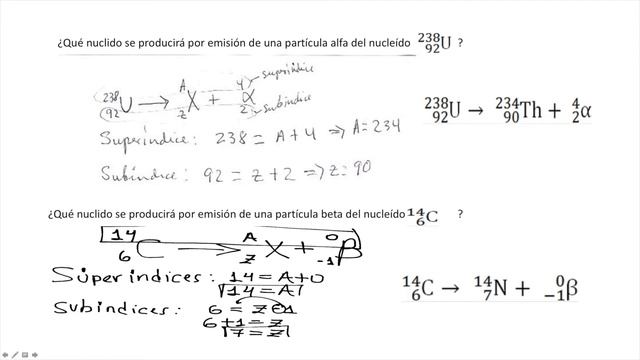 ¿Qué nuclido se producirá por emisión de una partícula alfa del nucleído ²³⁸₉₂U ?
²³⁸₉₂U → ᴬ_Z X + ⁴₂α superíndice
subíndice
Superíndice: 238 = A+4 => A=234
Subíndice: 92 = z+2 => z=90
²³⁸₉₂U → ²³⁴₉₀Th + ⁴₂α
¿Qué nuclido se producirá por emisión de una partícula beta del nucleído ¹⁴₆C ?
¹⁴₆C → ᴬ_Z X + ⁰₋₁β
Súperindices: 14=A+0
14=A
Subindices: 6 = Z-1
6+1=z
7=z
¹⁴₆C → ¹⁴₇N + ⁰₋₁β